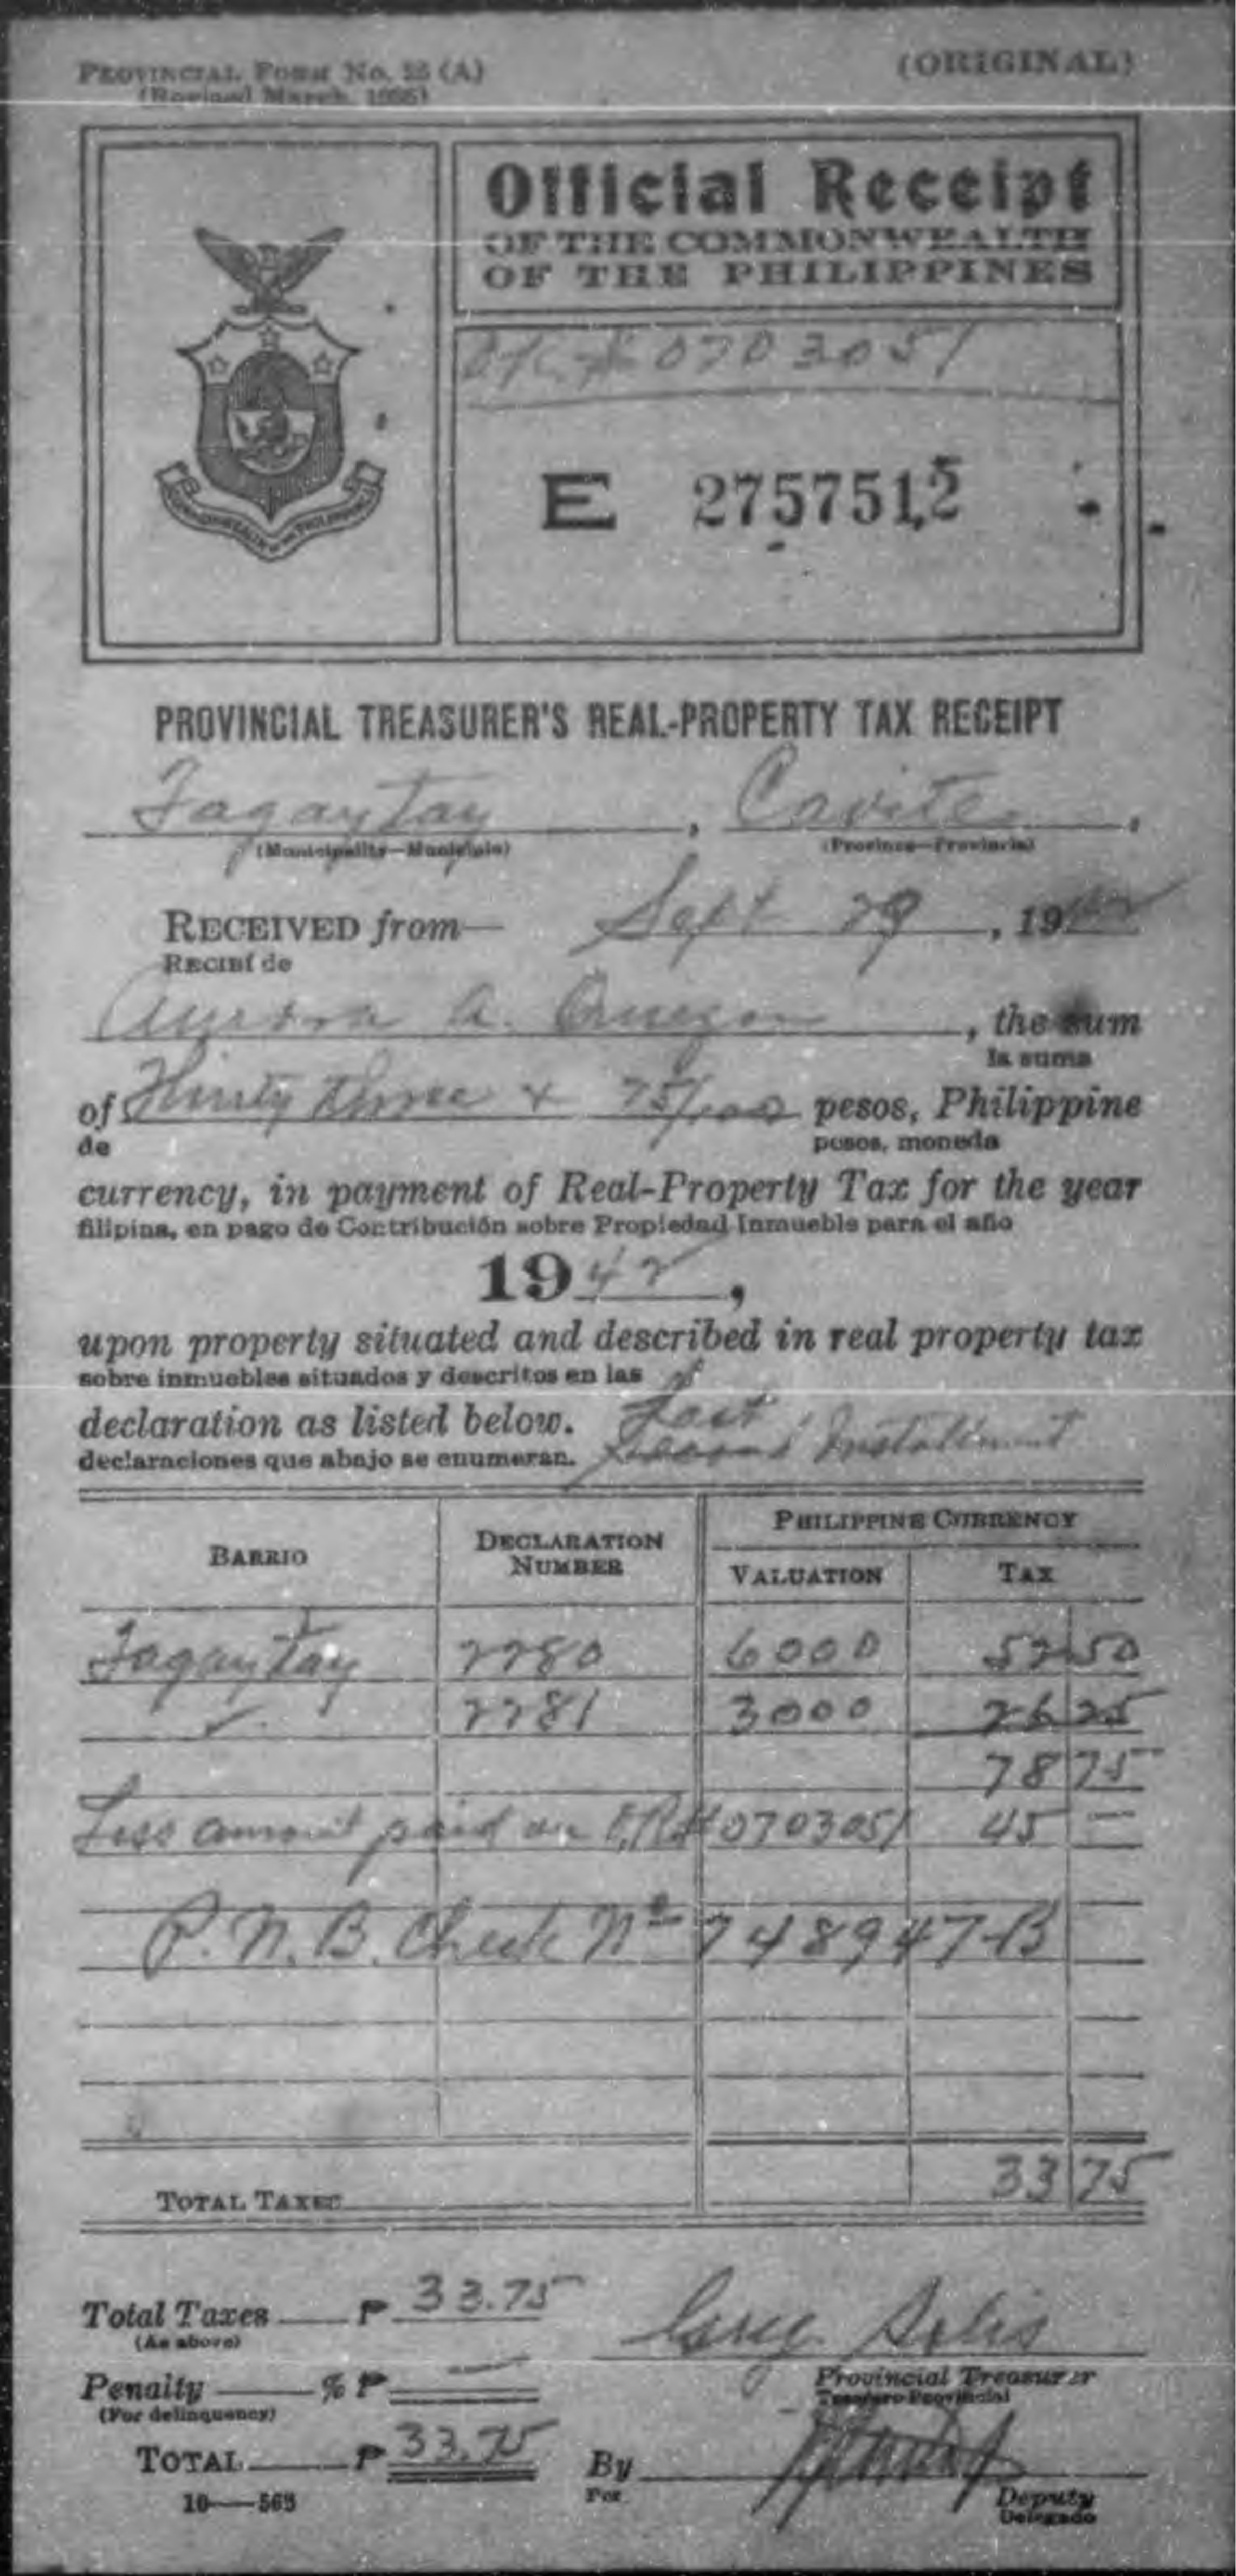 PROVINCIAL FORM No. (A)
(Revised March,
(ORIGINAL)
Official Receipt
OF THE COMMONWEALTH
OF THE PHILIPPINES
# 0703051
E 2757512
PROVINCIAL TREASURER'S REAL-PROPERTY TAX RECEIPT
Tagaytay, Cavite,
(Municipality—Municipio) (Province—Provincia)
RECEIVED from— Sept 29, 1942
RECIBÍ de
Aurora A., the sum
la suma
of Thirty three + 75/100 pesos, Philippine
de pesos, moneda
currency, in payment of Real-Property Tax for the year
filipina, en pago de Contribución sobre Propiedad Inmueble para el año
1942,
upon property situated and described in real property tax
sobre inmuebles situados y descritos en las
declaration as listed below. Last
declaraciones que abajo se enumeran. Second Installment
BARRIO DECLARATION NUMBER PHILIPPINE CURRENCY
VALUATION TAX
Tagaytay 2280 6000 52 50
2281 3000 26 25
78 75
Less amount paid on # 0703051 45 —
P.N.B. Check No 748947-B
TOTAL TAXES 33 75
Total Taxes ₱ 33.75
(As above)
Provincial Treasurer
Tesorero Provincial
Penalty % ₱ —
(For delinquency)
TOTAL ₱ 33.75
By
Por
Deputy
Delegado